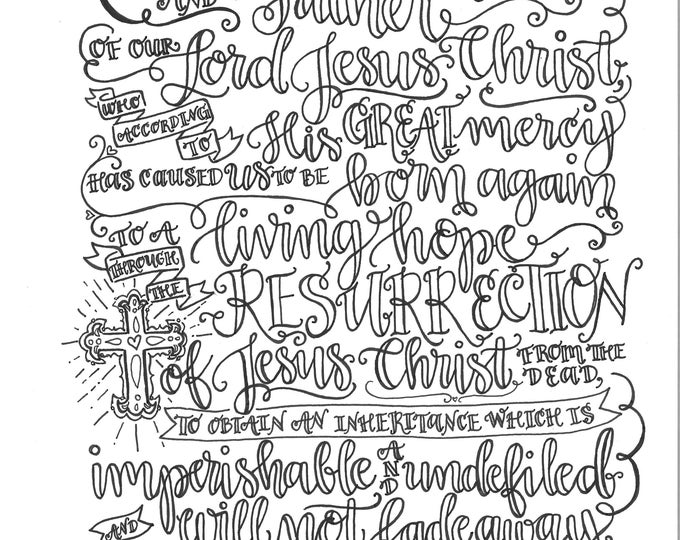 AND Father
OF OUR Lord Jesus Christ,
WHO ACCORDING TO His GREAT mercy
HAS CAUSED US TO BE born again
TO A living hope
THROUGH THE RESURRECTION
of Jesus Christ FROM THE DEAD,
TO OBTAIN AN INHERITANCE WHICH IS
imperishable AND undefiled
AND will not fade away